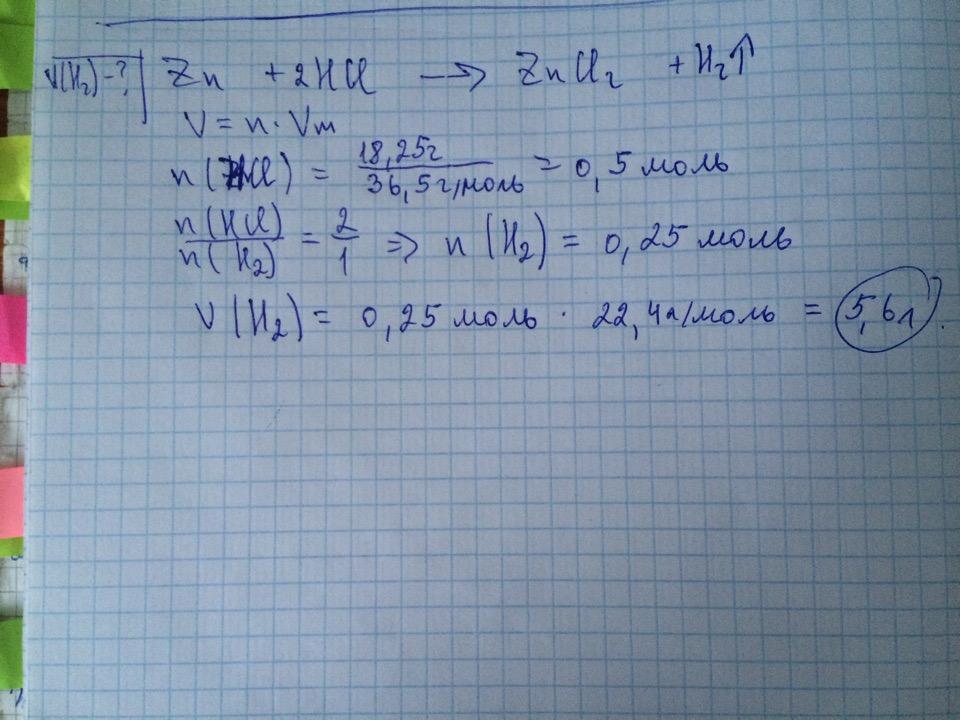 V(H₂) - ? Zn + 2HCl → ZnCl₂ + H₂↑
V = n · Vm
n (HCl) = 18,25г / 36,5г/моль = 0,5 моль
n(HCl) / n(H₂) = 2 / 1 ⇒ n (H₂) = 0,25 моль
V (H₂) = 0,25 моль · 22,4л/моль = 5,6л.